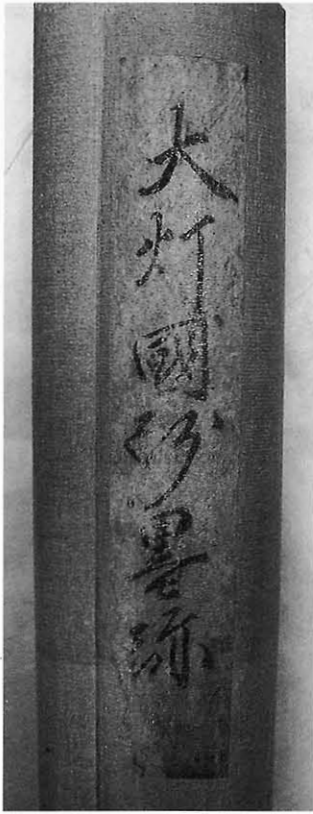 大灯國師墨跡